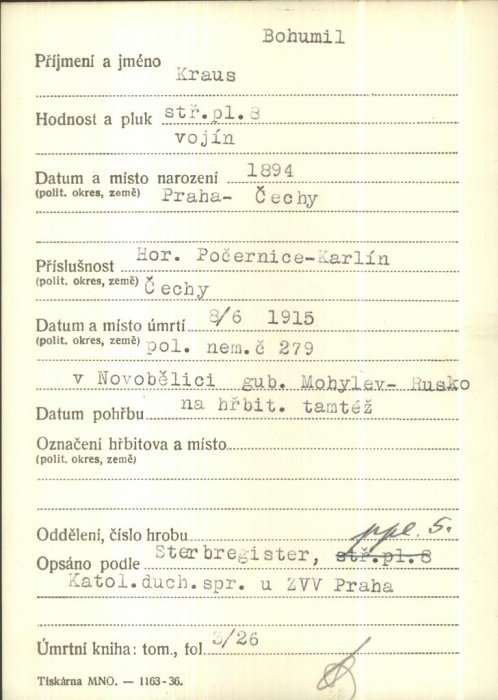 Bohumil
Příjmení a jméno Kraus
Hodnost a pluk stř.pl.8
vojín
Datum a místo narození 1894
(polit. okres, země) Praha- Čechy
Příslušnost Hor. Počernice-Karlín
(polit. okres, země) Čechy
Datum a místo úmrtí 8/6 1915
(polit. okres, země) pol. nem.č 279
v Novobělici gub. Mohylev- Rusko
Datum pohřbu na hřbit. tamtéž
Označení hřbitova a místo
(polit. okres, země)
Oddělení, číslo hrobu ppl. 5.
Opsáno podle Sterbregister, stř.pl.8
Katol.duch.spr. u ZVV Praha
Úmrtní kniha: tom., fol. 3/26
Tiskárna MNO. — 1163-36.